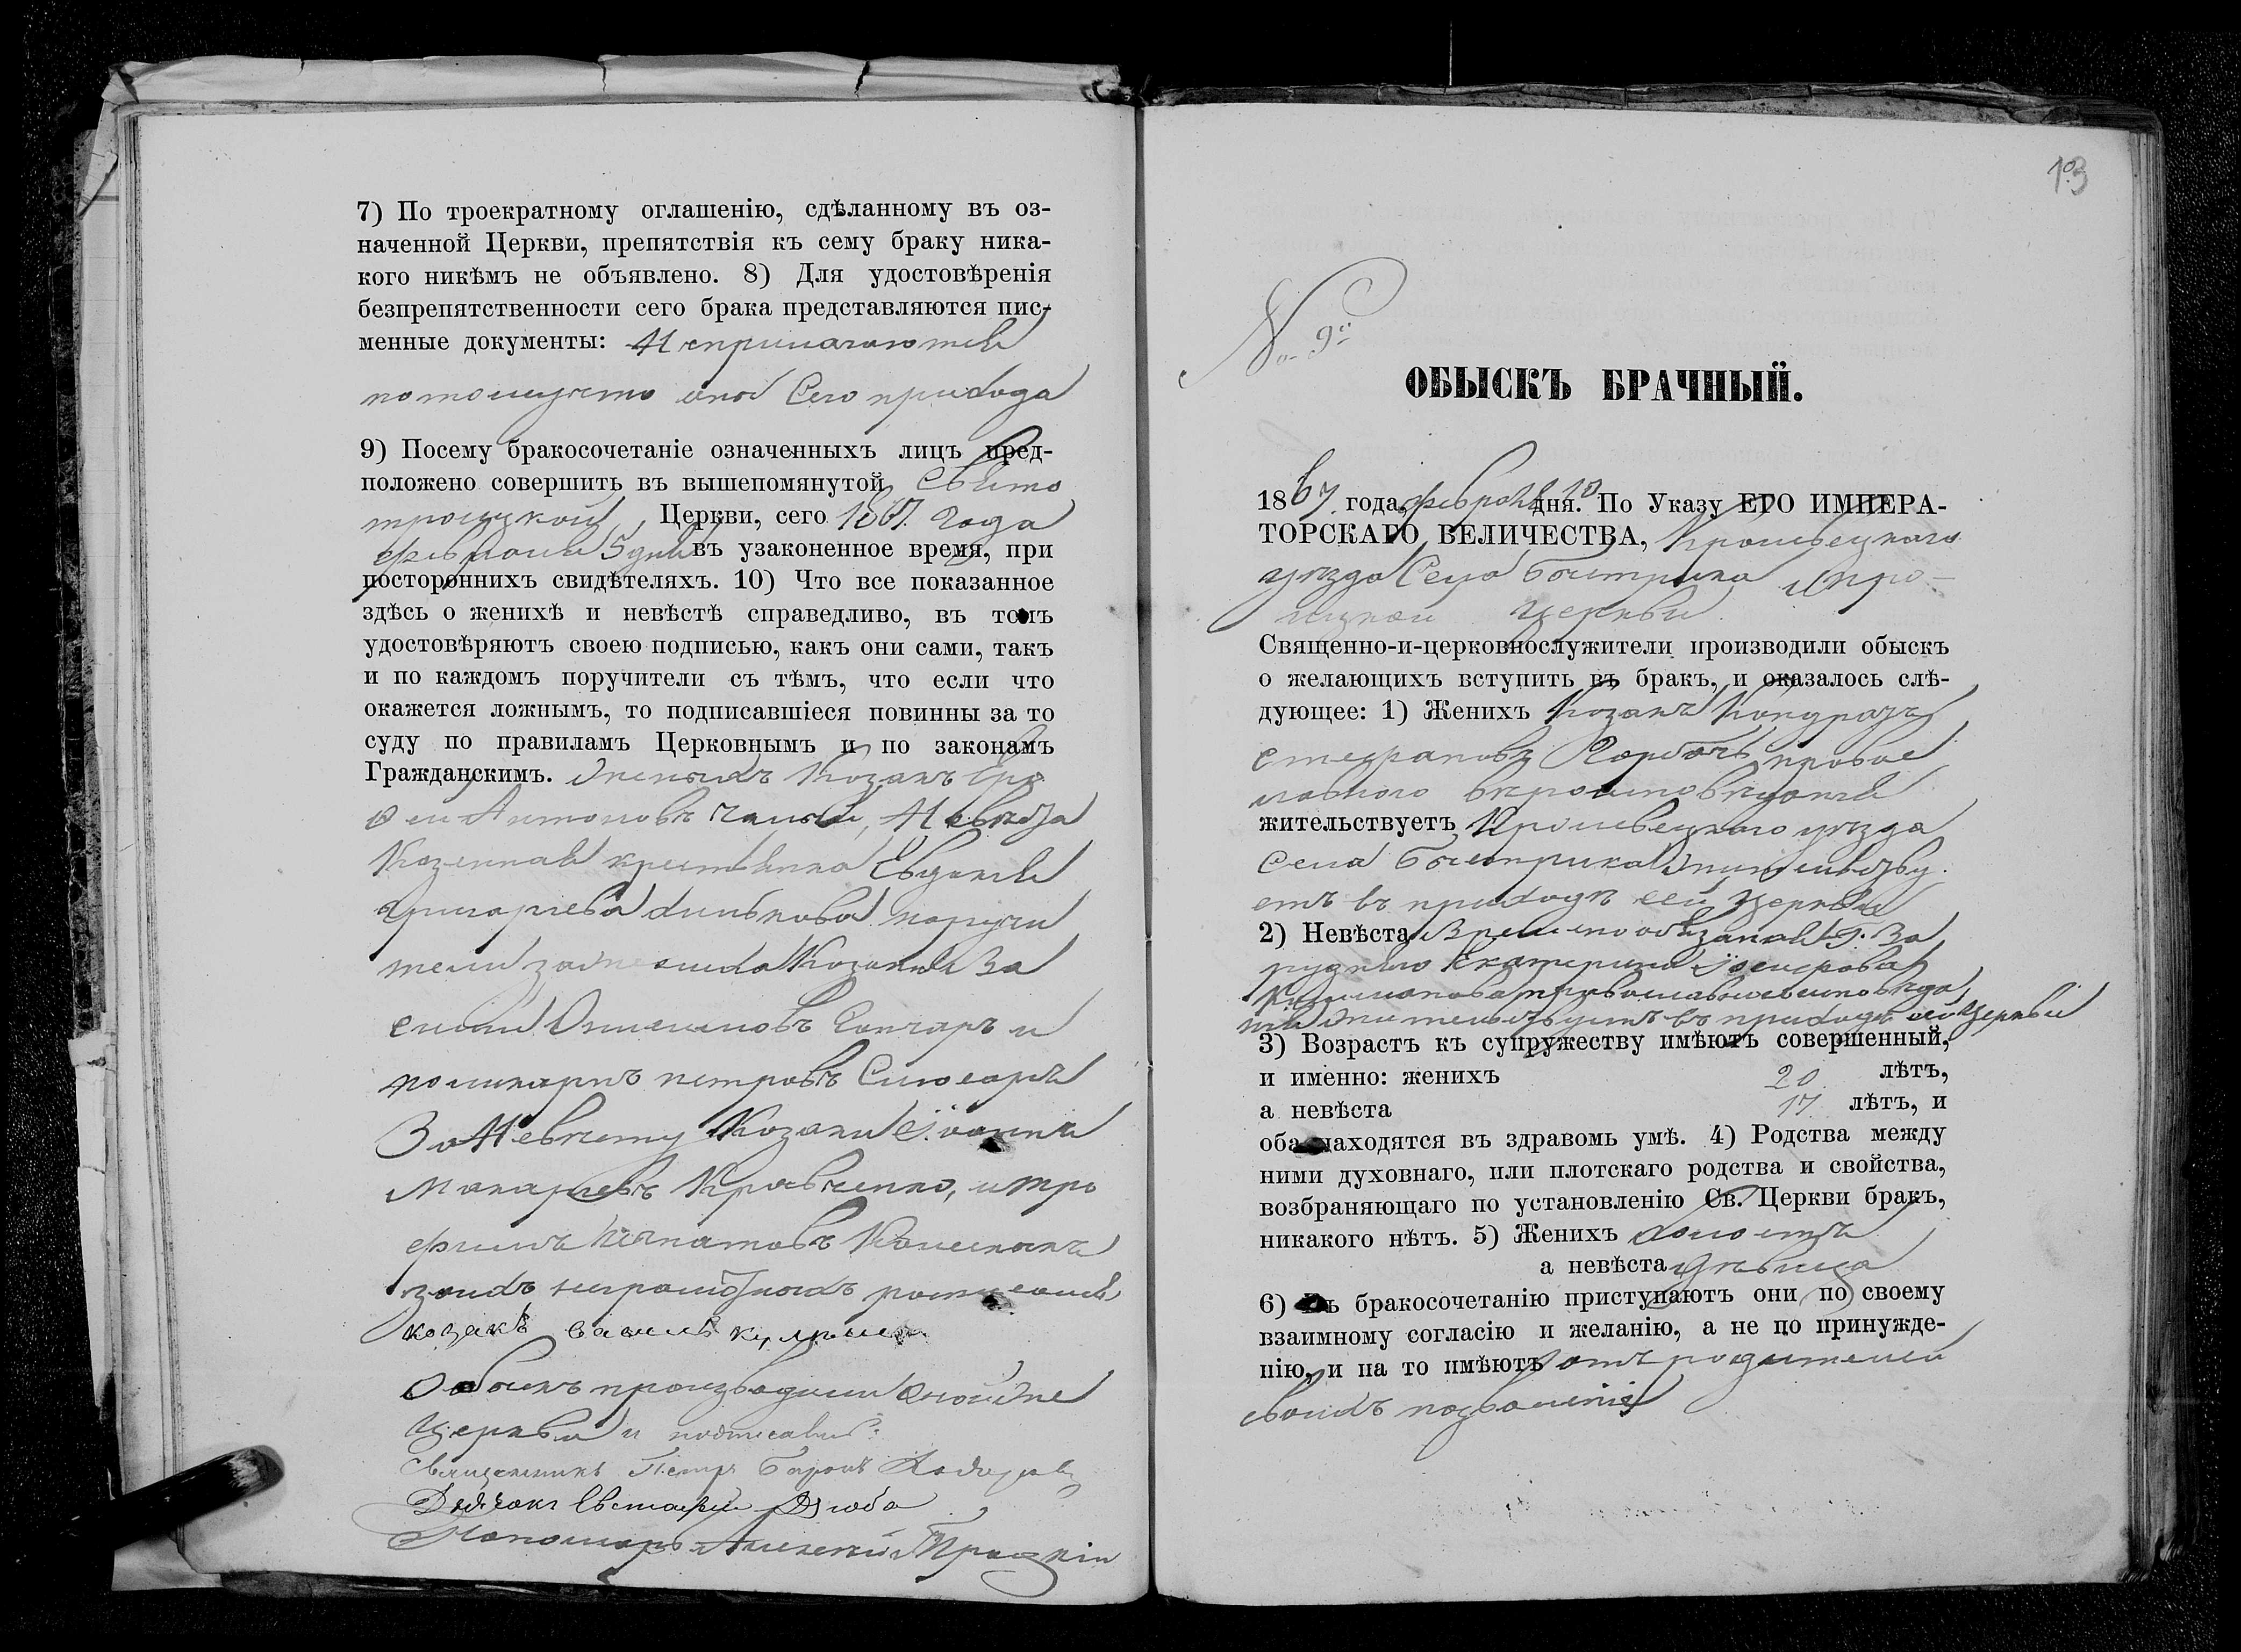 7) По троекратному оглашенію, сдѣланному въ оз-
наченной Церкви, препятствія къ сему браку ника-
кого никѣмъ не объявлено. 8) Для удостовѣренія
безпрепятственности сего брака представляются пис-
менные документы: Неприлагаются
потомучто они Сего прихода
9) Посему бракосочетаніе означенныхъ лицъ пред-
положено совершить въ вышепомянутой Свято
троицкой Церкви, сего 1867. Года
февраля 5 дня въ узаконенное время, при
постороннихъ свидѣтеляхъ. 10) Что все показанное
здѣсь о женихѣ и невѣстѣ справедливо, въ томъ
удостовѣряютъ своею подписью, какъ они сами, такъ
и по каждомъ поручители съ тѣмъ, что если что
окажется ложнымъ, то подписавшіеся повинны за то
суду по правиламъ Церковнымъ и по законамъ
Гражданскимъ. Женихъ Козакъ Еро
фей Антоновъ Невѣста
Козенная крестьянка Евдокія
Григориева поручи
тели за жениха Козаки Ва
силий Гончаръ и
поликарпъ петровъ Слюсарь
За Невѣсту Козаки
Макариевъ Кравченко, и тро
фимъ Игнатовъ
заихъ неграмотныхъ росписался
козакъ василь
Обыскъ производили оной же
Церкви и подписались:
Священникъ Петръ
Дьячокъ Евстафій Дзюба
Пономарь Алексей
13
No 9й
ОБЫСКЪ БРАЧНЫЙ.
1867 года, февраля 10 дня. По Указу ЕГО ИМПЕРА-
ТОРСКАГО ВЕЛИЧЕСТВА, Кролевецкаго
уѣзда Села Быстрика Тро-
ицкой Церкви
Священно-и-церковнослужители производили обыскъ
о желающихъ вступить въ бракъ, и оказалось слѣ-
дующее: 1) Женихъ Козакъ Кондратъ
стефановъ Горбачь православ
лавного вѣроисповѣданія
жительствуетъ Кролевецкого уѣзда
Села Быстрика жительству
етъ въ приходѣ сей Церкви
2) Невѣста Временно обязаная г. За
руднаго Екатерина
православного исповѣда
нія жительствуетъ въ приходѣ сей Церкви
3) Возрастъ къ супружеству имѣютъ совершенный,
и именно: женихъ 20 лѣтъ,
а невѣста 17 лѣтъ, и
оба находятся въ здравомь умѣ. 4) Родства между
ними духовнаго, или плотскаго родства и свойства,
возбраняющаго по установленію Св. Церкви бракъ,
никакого нѣтъ. 5) Женихъ холостъ
а невѣста дѣвица
6) Къ бракосочетанію приступаютъ они по своему
взаимному согласію и желанію, а не по принужде-
нію, и на то имѣютъ отъ родителей
своихъ позволеніе